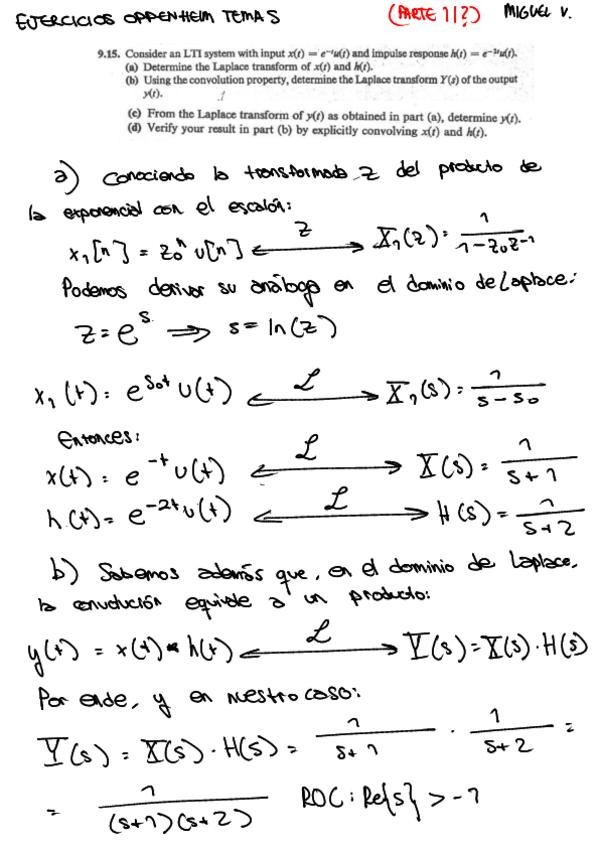 EJERCICIOS OPPENHEIM TEMA 5 (PARTE 1 I?) MIGUEL V.
9.15. Consider an LTI system with input x(t) = e⁻ᵗu(t) and impulse response h(t) = e⁻²ᵗu(t).
(a) Determine the Laplace transform of x(t) and h(t).
(b) Using the convolution property, determine the Laplace transform Y(s) of the output
y(t).
(c) From the Laplace transform of y(t) as obtained in part (a), determine y(t).
(d) Verify your result in part (b) by explicitly convolving x(t) and h(t).
a) Conociendo la transformada Z del producto de
la exponencial con el escalón:
x₁[n] = z₀ⁿ u[n] ⟷ Z X₁(z) = 1/(1 - z₀z⁻¹)
Podemos derivar su análoga en el dominio de Laplace:
z = eˢ ⟹ s = ln(z)
x₁(t) = e^(s₀t) u(t) ⟷ ℒ X₁(s) = 1/(s - s₀)
Entonces:
x(t) = e^(-t) u(t) ⟷ ℒ X(s) = 1/(s+1)
h(t) = e^(-2t) u(t) ⟷ ℒ H(s) = 1/(s+2)
b) Sabemos además que, en el dominio de Laplace,
la convolución equivale a un producto:
y(t) = x(t) * h(t) ⟷ ℒ Y(s) = X(s) · H(s)
Por ende, y en nuestro caso:
Y(s) = X(s) · H(s) = 1/(s+1) · 1/(s+2) =
= 1/((s+1)(s+2)) ROC: Re{s} > -1